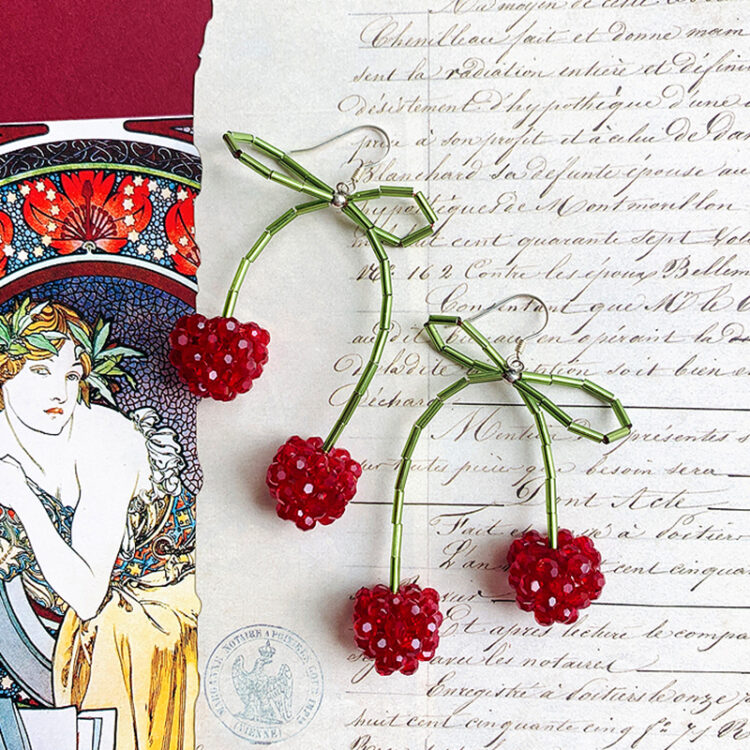 Au moyen de cette
Chenilleau fait et donne main
sent la radiation entière et défini
désistement d'hypothèque d'une
prise à son profit et à celui de Da
Blanchard sa défunte épouse au
hypothèques de Montmorillon
huit cent quarante sept Vol
N° 162 Contre les époux Bellem
Consentant que Mr le
au dit bureau en opérant la
de la dite soit bien e
décharg
Mention présentes
sur toutes pièces que besoin sera
Dont Acte
Fait à Poitiers
L'an cent cinqua
Et après lecture le compa
avec les notaires
Enregistré à Poitiers le onze
huit cent cinquante cinq f° 75 R
NOTAIRE
(VIENNE)